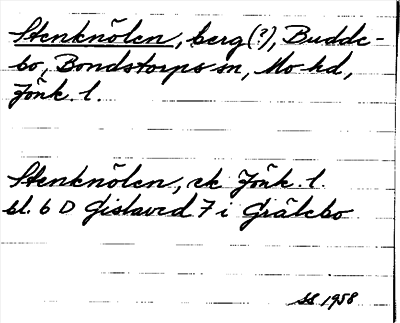 Stenknölen, berg(?), Budde-
bo, Bondstorps sn, Mo hd,
Jönk. l.
Stenknölen, ek Jönk. l.
bl. 6 D Gislaved 7 i Grälebo
SS 1958